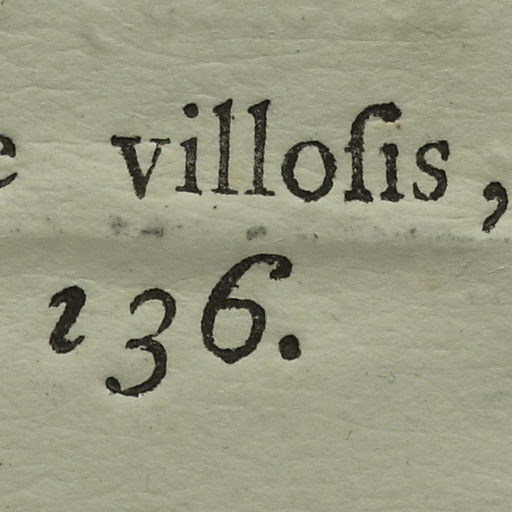 e villoſis,
136.